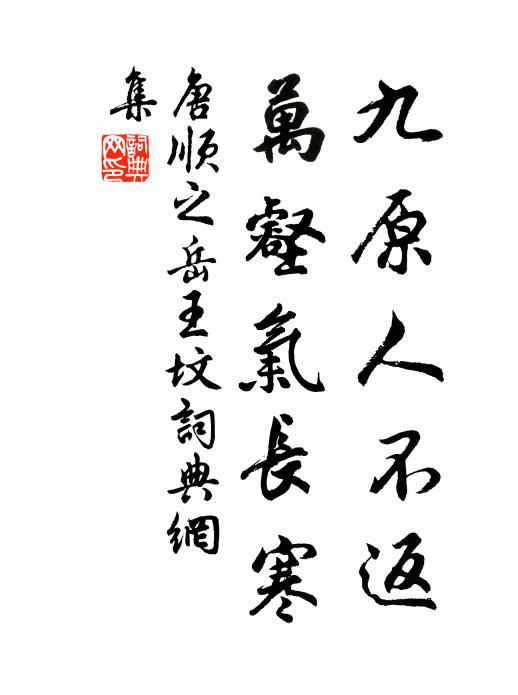 九原人不返
萬壑氣長寒
唐順之岳王坟詞典網
集
詞典
网印